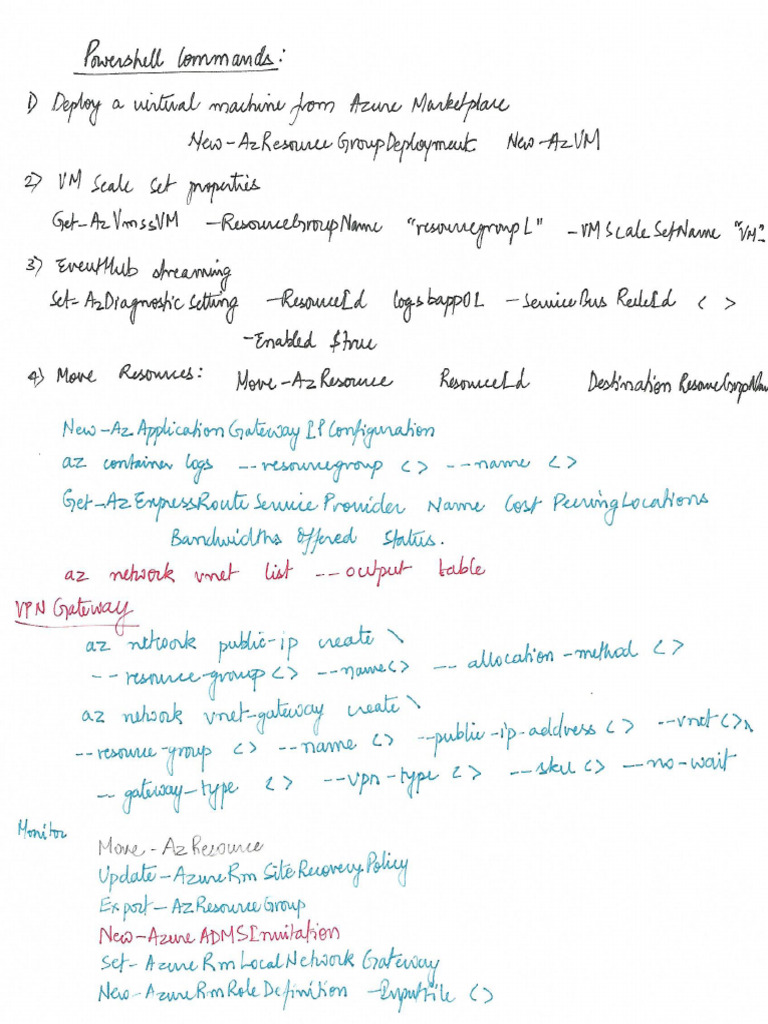 Powershell Commands:
1) Deploy a virtual machine from Azure Marketplace
New-AzResourceGroupDeployment New-AzVM
2) VM Scale Set properties
Get-AzVmssVM -ResourceGroupName "resourcegroup1" -VMScaleSetName "VM"
3) EventHub streaming
Set-AzDiagnosticSetting -ResourceId -ServiceBusRuleId < >
-Enabled $true
4) Move Resources: Move-AzResource ResourceId
New-AzApplicationGatewayIPConfiguration
az container logs --resourcegroup <> --name <>
Get-AzExpressRouteServiceProvider Name Cost PeeringLocations
Bandwidths Offered Status.
az network vnet list --output table
VPN Gateway
az network public-ip create \
--resource-group <> --name <> --allocation-method <>
az network vnet-gateway create \
--resource-group <> --name <> --public-ip-address <> --vnet <> \
--gateway-type <> --vpn-type <> --sku <> --no-wait
Monitor
Move-AzResource
Update-AzureRmSiteRecoveryPolicy
Export-AzResourceGroup
New-AzureADMSInvitation
Set-AzureRmLocalNetworkGateway
New-AzureRmRoleDefinition -InputFile <>